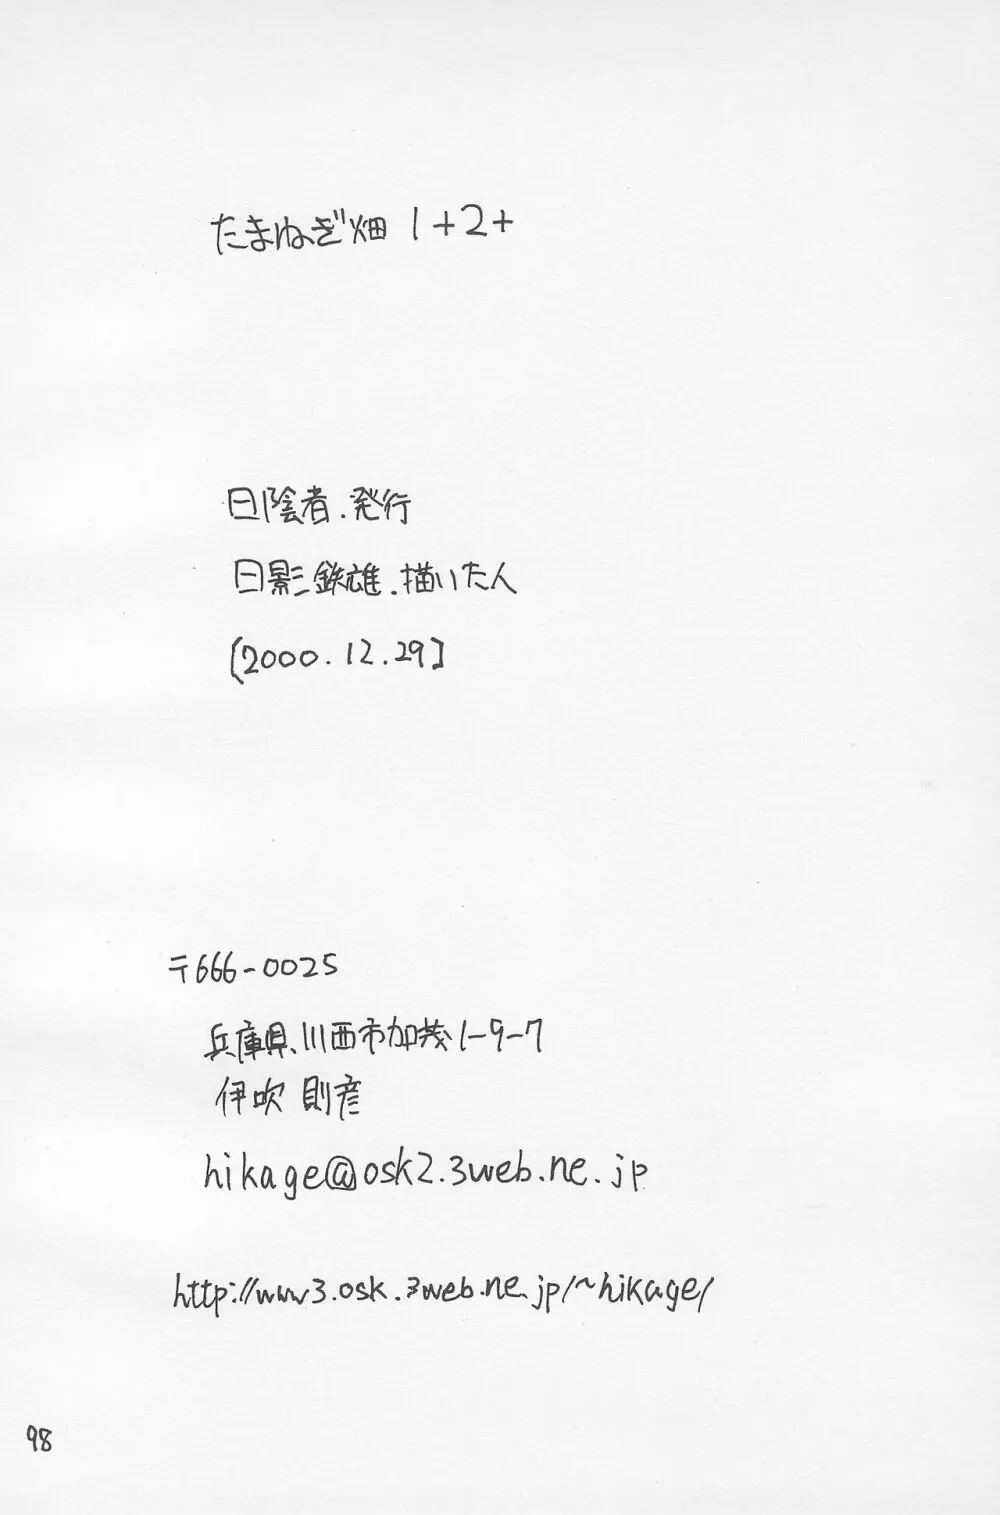 たまねぎ畑 1+2+
日陰者.発行
日影鉄雄.描いた人
[2000.12.29]
〒666-0025
兵庫県、川西市加茂1-9-7
伊吹 則彦
hikage@osk2.3web.ne.jp
http://www3.osk.3web.ne.jp/~hikage/
98